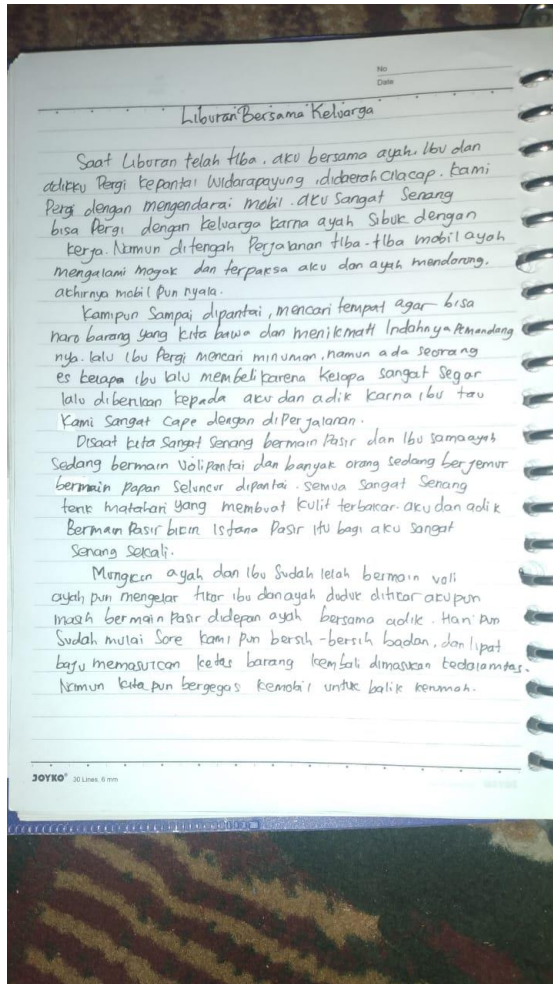 No
Date
Liburan Bersama Keluarga
Saat Liburan telah tiba, aku bersama ayah, Ibu dan
adikku Pergi kepantai Widarapayung, didaerah Cilacap. Kami
Pergi dengan mengendarai mobil. aku sangat Senang
bisa Pergi dengan keluarga karna ayah Sibuk dengan
kerja. Namun ditengah Perjalanan tiba-tiba mobil ayah
mengalami mogok dan terpaksa aku dan ayah mendorong.
akhirnya mobil pun nyala.
Kamipun Sampai dipantai, mencari tempat agar bisa
naro barang yang kita bawa dan menikmati Indahnya Pemandang
nya. lalu Ibu Pergi mencari minuman, namun ada seorang
es kelapa ibu lalu membeli karena Kelapa sangat Segar
lalu diberikan kepada aku dan adik karna ibu tau
Kami Sangat Cape dengan diPerjalanan.
Disaat kita Sangat Senang bermain Pasir dan Ibu sama ayah
Sedang bermain Volipantai dan banyak orang sedang berjemur
bermain Papan Seluncur dipantai. Semua Sangat Senang
terik matahari yang membuat kulit terbakar. aku dan adik
Bermain Pasir bikin Istana Pasir itu bagi aku sangat
Senang Sekali.
Mungkin ayah dan Ibu Sudah lelah bermain voli
ayah pun mengelar tikar ibu dan ayah duduk ditikar aku pun
masih bermain Pasir didepan ayah bersama adik. Hari Pun
Sudah mulai Sore kami Pun bersih-bersih badan, dan lipat
baju memasurcan ketas barang kembali dimasukan kedalamtas.
Namun kita pun bergegas kemobil untuk balik kerumah.
JOYKO 30 Lines, 6 mm